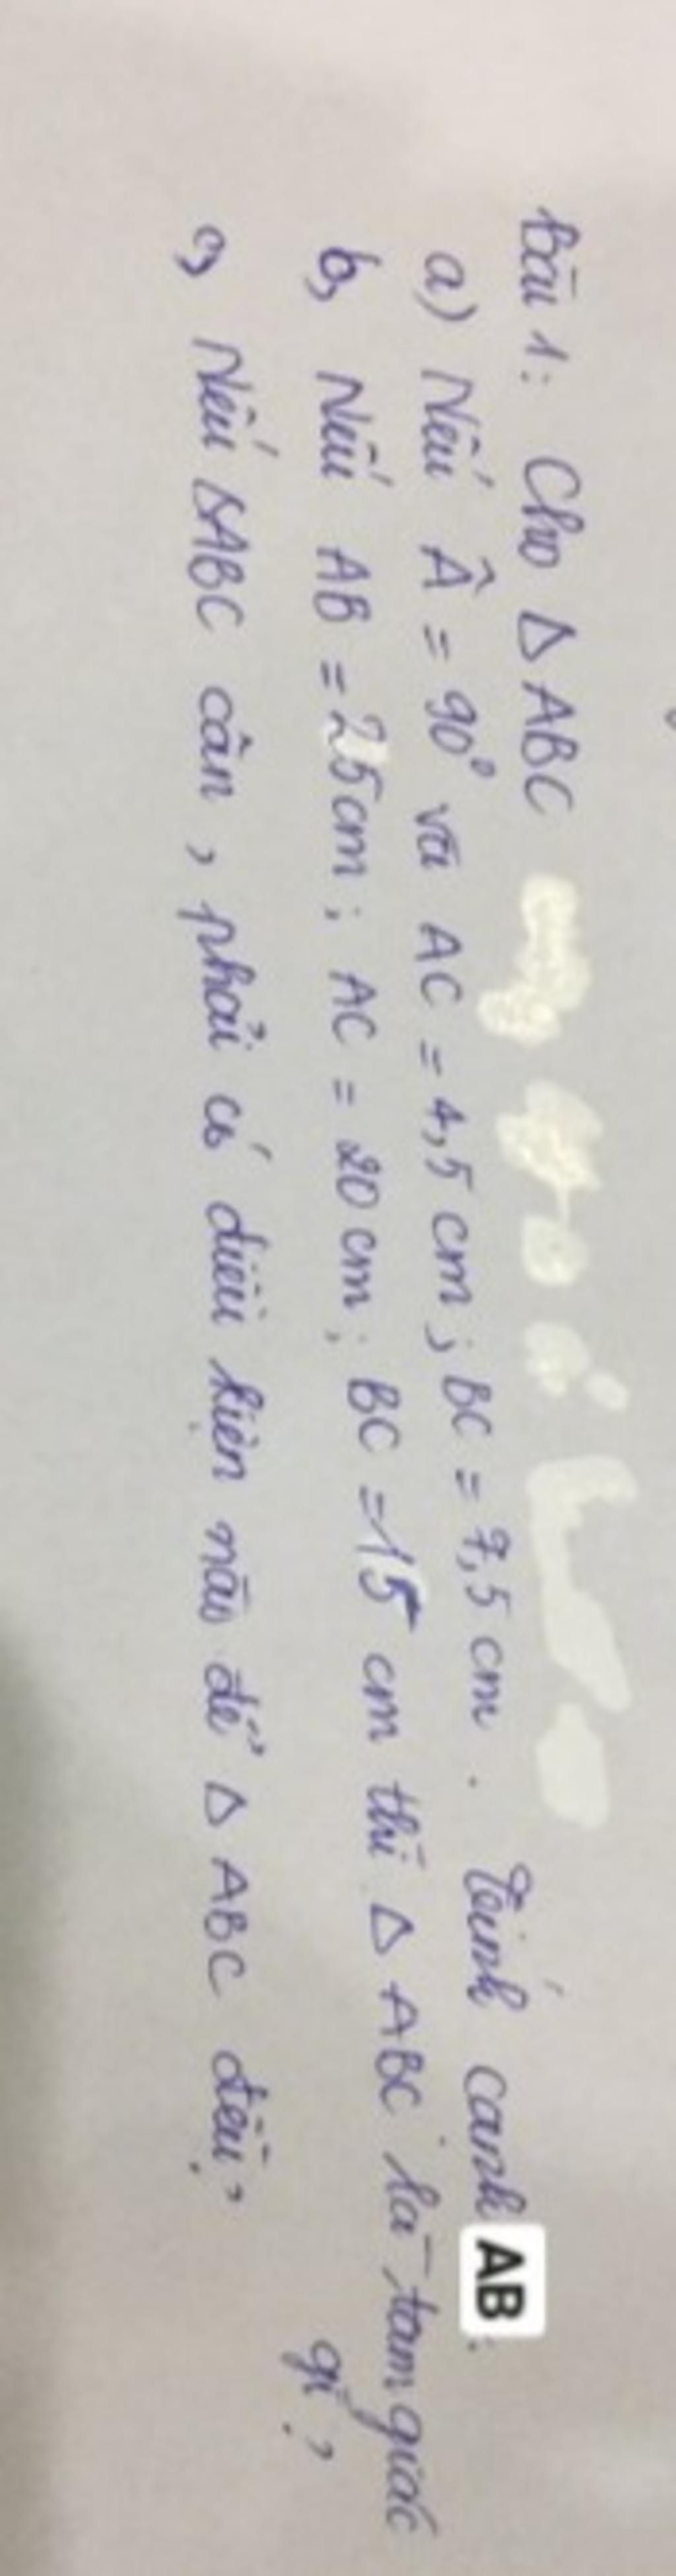 Bài 1: Cho Δ ABC
a) Nếu Â = 90° và AC = 4,5 cm; BC = 7,5 cm. Tính cạnh AB.
b, Nếu AB = 25cm; AC = 20 cm; BC = 15 cm thì Δ ABC là tam giác
gì?
c, Nếu ΔABC cân, phải có điều kiện nào để Δ ABC đều?